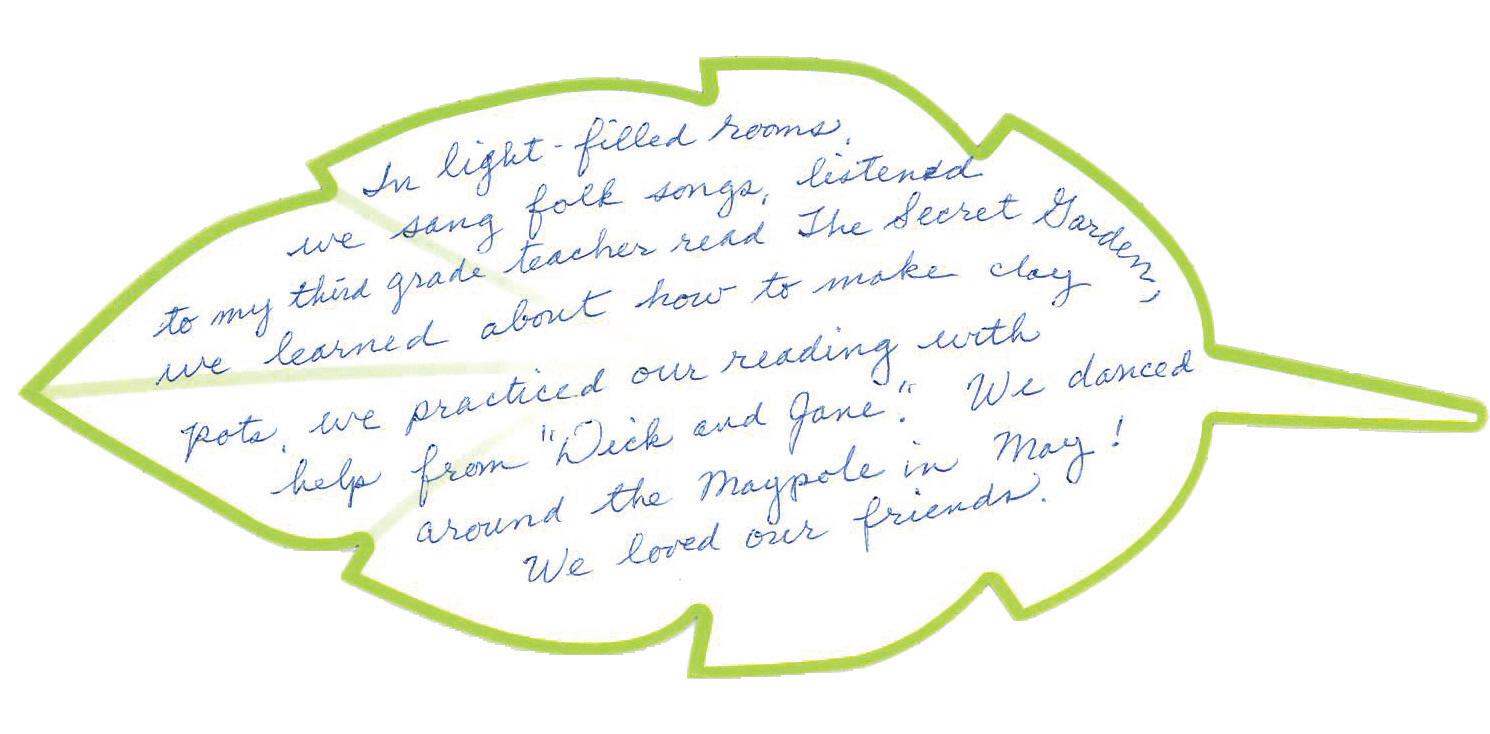 In light-filled rooms,
we sang folk songs, listened
to my third grade teacher read The Secret Garden,
we learned about how to make clay
pots, we practiced our reading with
help from "Dick and Jane". We danced
around the Maypole in May!
We loved our friends.